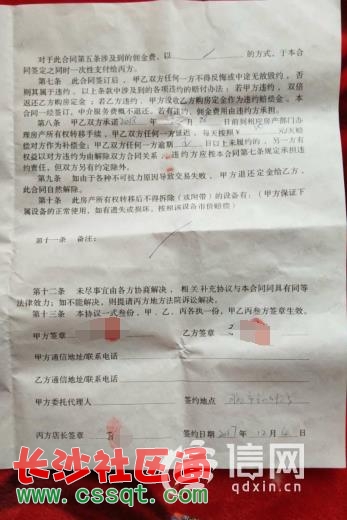 对于此合同第五条涉及到的佣金费，以 / 的方式，于本合
同签定之同时一次性支付给丙方。
第七条 此合同签订后，甲乙双方任何一方不得反悔或中途无故毁约，否
则其属于违约。以上条款中涉及到的违约的赔付办法：若甲方违约，双倍
返还乙方购房定金；若乙方违约，甲方没收乙方购房定金作为违约赔偿金。本
合同一经签订，中介服务费概不退还。若有违约，佣金费用由违约方承担。
第八条 甲乙双方承诺 日前到相应房产部门办
理房产所有权转移手续，甲乙双方任何一方延迟，每天按照 元/天赔
偿对方作为补偿金；甲乙双方任何一方逾期 日以上未履约的，另一方有
权益以对方违约为由解除双方合同关系，违约方应按本合同第七条规定承担违
约责任，但双方另有约定除外。
第九条 如由于各种不可抗力原因导致交易失败，甲方退还定金给乙方，
此合同自然解除。
第十条 此房产所有权转移后不得拆除（或附带）的设备有：（甲方保证下
属设备的正常使用，如有遗失或损坏，按照该设备市价赔偿）
第十一条 备注：
第十二条 未尽事宜由各方协商解决，相关补充协议与本合同具有同等
法律效力；如不能解决，则提请丙方地方法院诉讼解决。
第十三条 本协议一式叁份，甲、乙、丙各执一份，甲乙丙叁方签章生效。
甲方签章 乙方签章
甲方通信地址/联系电话
乙方通信地址/联系电话
甲方委托代理人 签约地点
丙方店长签章 签约日期 2017 年 12 月 日
长沙社区通
www.cssqt.com
信网
qdxin.cn